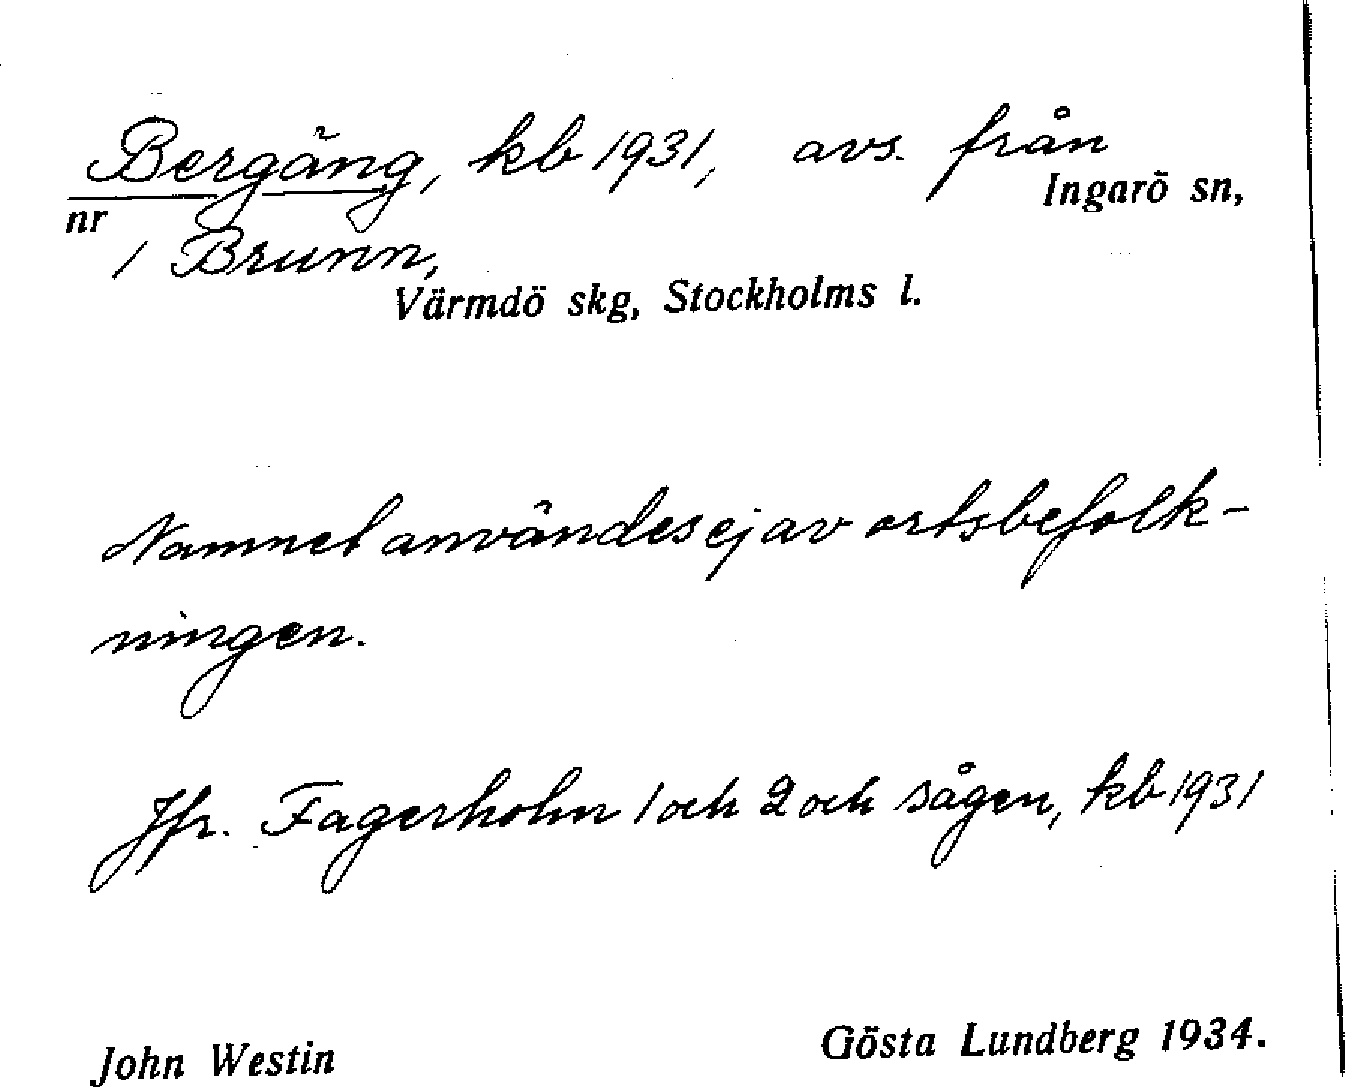 Bergäng, kb 1931, avs. från
Ingarö sn,
nr
1 Brunn,
Värmdö skg, Stockholms l.
Namnet användes ej av ortsbefolk-
ningen.
Jfr. Fagerholm 1 och 2 och sågen, kb 1931
John Westin
Gösta Lundberg 1934.